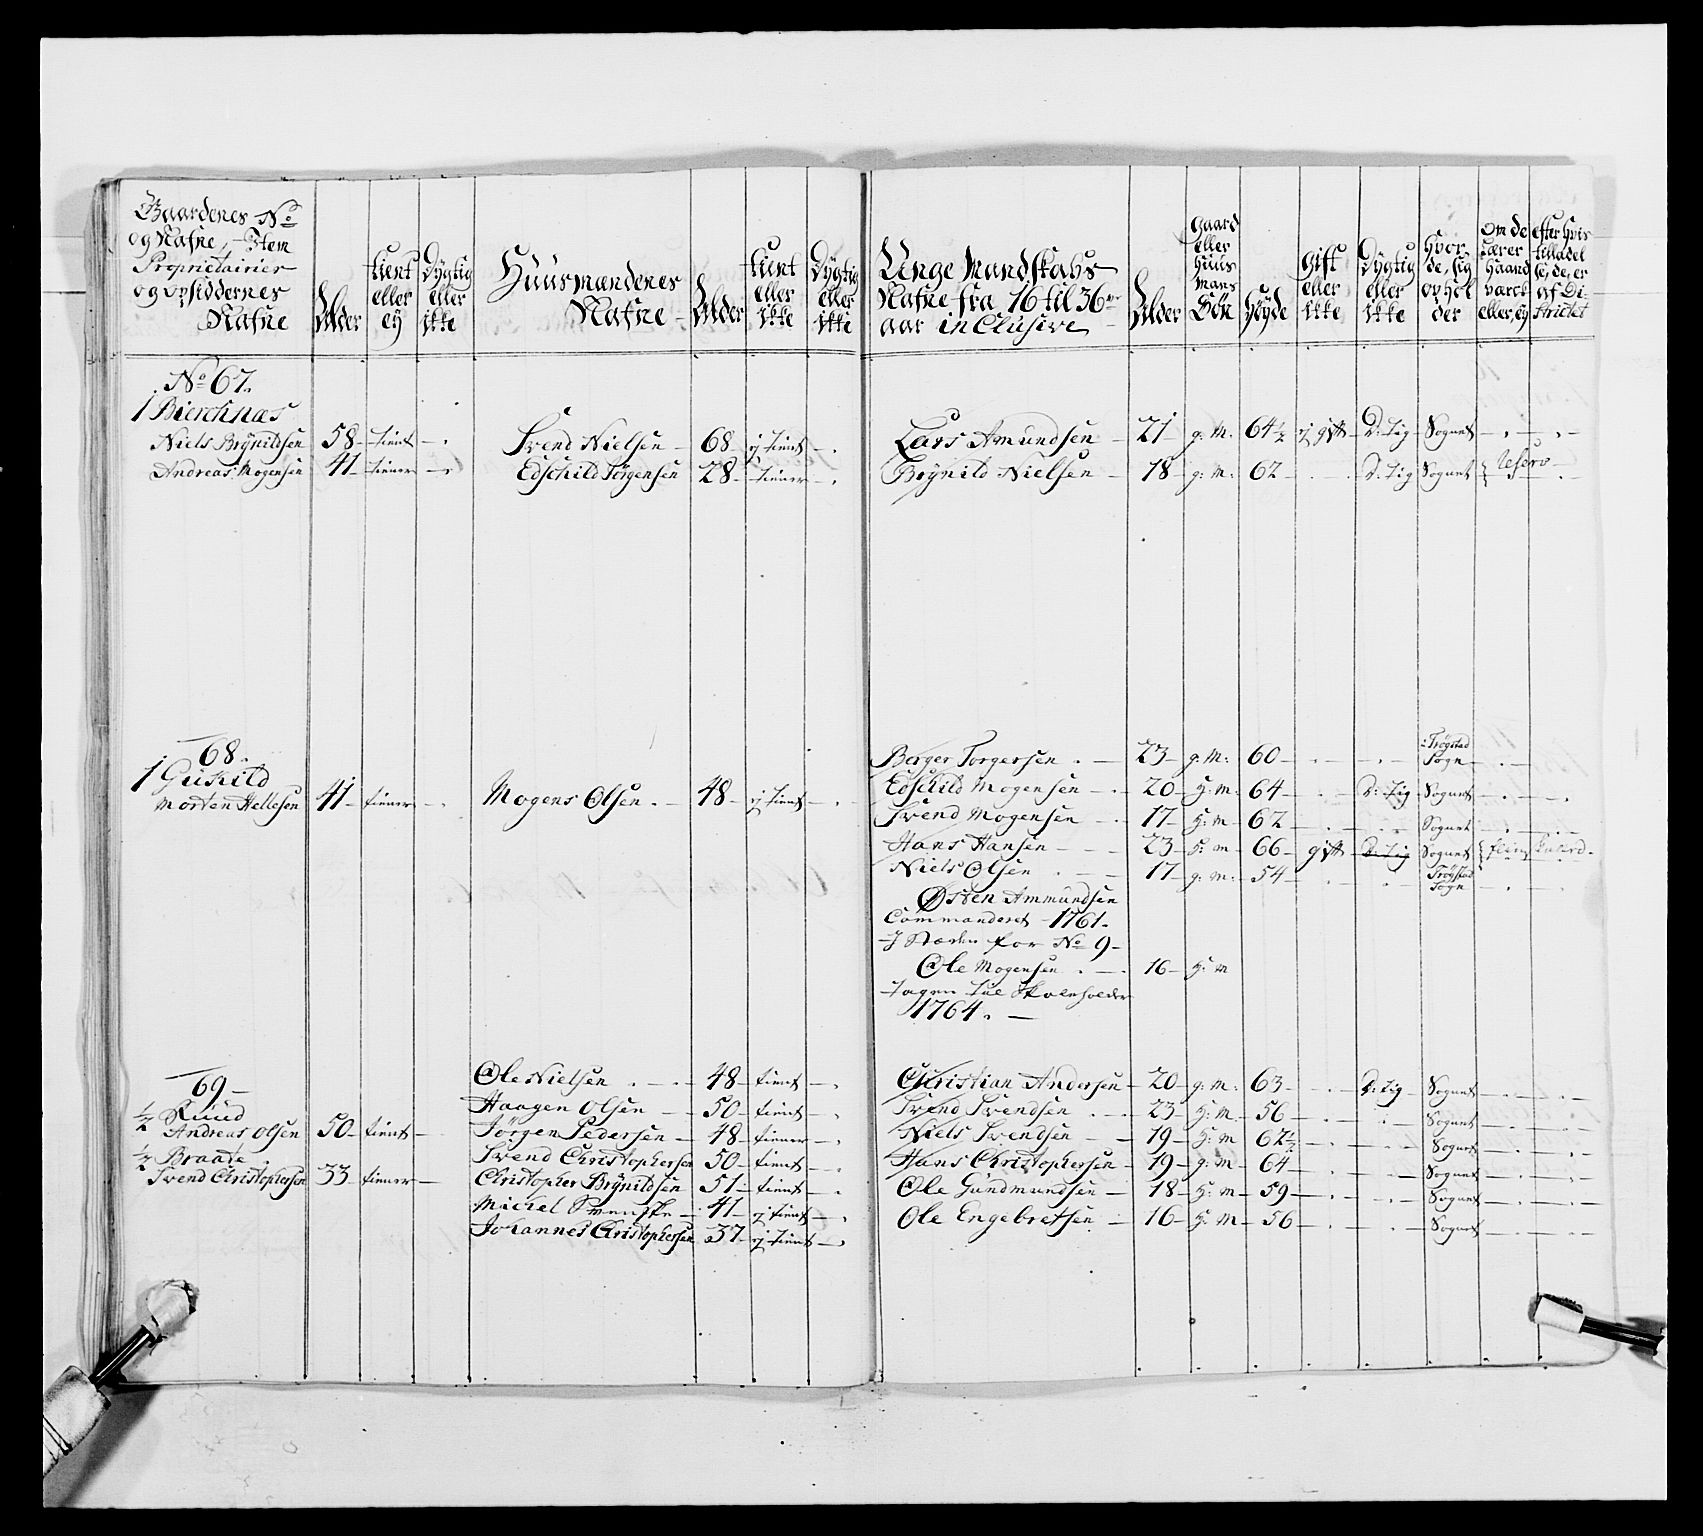 Gaardenes No
og Nafne, Item
Proprietairier
og opsiddernes
Nafne
Alder
tient eller ej
Dygtig eller ikke
Huusmændenes Nafne
Alder
tient eller ikke
Dygtig eller ikke
Unge Mandskabs
Nafne fra 16 til 36
aar inclusive
Alder
Gaard eller Huus mans Søn
Høyde
Gift eller ikke
Dygtig eller ikke
Hvor de sig opholder
Om de lærer Haandværck eller ej
efter hvis tilladelse, de er af Districtet
No 67.
1 Bierchnæs
Niels Brynildsen 58 - tient - Svend Nielsen - 68 ej tient - Lars Amundsen - 21 - g: M: 64 1/2 ej gift - D: tig Sognet
Andreas Mogensen 41 - tiener - Edschild Jørgensen 28 - tiener - Brynild Nielsen - 18 - g: m: 62 - D: tig Sognet Reserv
68.
1 Guskild
Morten Hellesen 41 - tiener - Mogens Olsen - 48 - ej tient -
Berger Torgersen - 23 - g: M: 60 - i Trøgstad Sogn
Edschild Mogensen - 20 - H: M: 64 - D: tig Sognet
Svend Mogensen - 17 - H: M - 62 - Sognet
Hans Hansen - 23 - H: m - 66 - gift - D: tig Sognet
Niels Olsen - 17 - g: m: - 54 - Trøgstad Sogn
Østen Ammundsen
Commanderet - 1761.
I Stæden for No 9 -
Ole Mogensen - 16 - H: m
Tagen til Skoleholder
1764. -
69 -
1/2 Ruud
Andreas Olsen 50 - tient -
1/2 Braade
Svend Christophersen 33 - tiener -
Ole Nielsen - 48 - tient -
Haagen Olsen - 50 - tient -
Jørgen Pedersen - 48 - tiener -
Svend Christophersen 50 - tient -
Christopher Brynildsen 51 - tient -
Michel Svenske - 41 - ej tient -
Johannes Christophersen 37 - ej tient -
Christian Andersen - 20 - g: m: 63 - D: tig Sognet
Svend Svendsen - 23 - H: m - 56 - Sognet
Niels Svendsen - 19 - H: m 62 1/2 - Sognet
Hans Christophersen - 19 - g: m - 64 - Sognet
Ole Gundmundsen - 18 - H: m - 59 - Sognet
Ole Engebretsen - 16 - H: M - 56 - Sognet